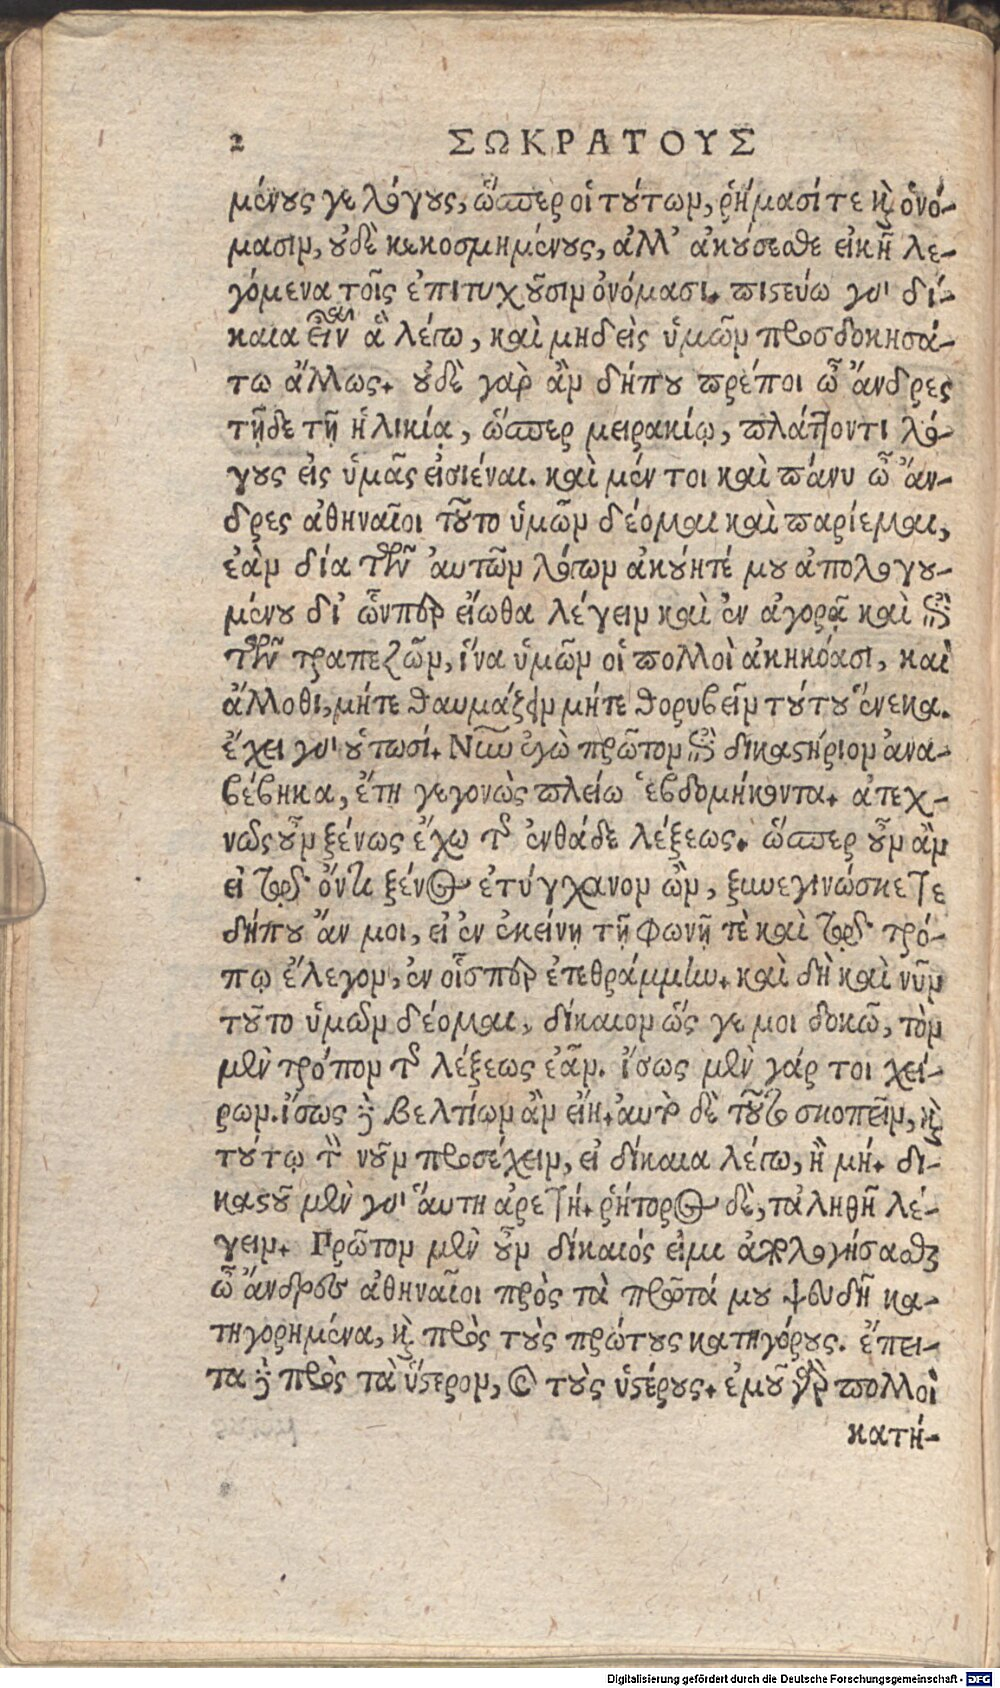 2 ΣΩΚΡΑΤΟΥΣ
μένους γε λόγους, ὥσπερ οἱ τούτων, ῥήμασί τε καὶ ὀνό-
μασιν, οὐδὲ κεκοσμημένους, ἀλλ' ἀκούσεσθε εἰκῆ λε-
γόμενα τοῖς ἐπιτυχοῦσιν ὀνόμασι. πιστεύω γὰρ δί-
καια εἶναι ἃ λέγω, καὶ μηδεὶς ὑμῶν προσδοκησά-
τω ἄλλως. οὐδὲ γὰρ ἂν δήπου πρέποι ὦ ἄνδρες
τῇδε τῇ ἡλικίᾳ, ὥσπερ μειρακίῳ, πλάττοντι λό-
γους εἰς ὑμᾶς εἰσιέναι. καὶ μέν τοι καὶ πάνυ ὦ ἄν-
δρες ἀθηναῖοι τοῦτο ὑμῶν δέομαι καὶ παρίεμαι,
ἐὰν δία τῶν ἀυτῶν λόγων ἀκούητέ μου ἀπολογου-
μένου δι' ὧνπερ εἴωθα λέγειν καὶ ἐν ἀγορᾷ καὶ ἐπὶ
τῶν τραπεζῶν, ἵνα ὑμῶν οἱ πολλοὶ ἀκηκόασι, καὶ
ἄλλοθι, μήτε θαυμάζειν μήτε θορυβεῖν τούτου ἕνεκα.
ἔχει γὰρ οὑτωσί. Νῦν ἐγὼ πρῶτον ἐπὶ δικαστήριον ἀνα-
βέβηκα, ἔτη γεγονὼς πλείω ἑβδομήκοντα. ἀτεχ-
νῶς οὖν ξένως ἔχω τῆς ἐνθάδε λέξεως. ὥσπερ οὖν ἂν
εἰ τῷ ὄντι ξένος ἐτύγχανον ὢν, ξυνεγινώσκετε
δήπου ἄν μοι, εἰ ἐν ἐκείνῃ τῇ φωνῇ τὲ καὶ τῷ τρό-
πῳ ἔλεγον, ἐν οἷσπερ ἐτεθράμμην. καὶ δὴ καὶ νῦν
τοῦτο ὑμῶν δέομαι, δίκαιον ὥς γε μοι δοκῶ, τὸν
μὲν τρόπον τῆς λέξεως ἐᾶν. ἴσως μὲν γάρ τοι χεί-
ρων. ἴσως δὲ βελτίων ἂν εἴη. ἀυτὸ δὲ τοῦτο σκοπεῖν, καὶ
τούτῳ τὸν νοῦν προσέχειν, εἰ δίκαια λέγω, ἢ μή. δι-
καστοῦ μὲν γὰρ ἅυτη ἀρετή. ῥήτορος δὲ, τἀληθῆ λέ-
γειν. Πρῶτον μὲν οὖν δίκαιός εἰμι ἀπολογήσασθαι
ὦ ἄνδρες ἀθηναῖοι πρὸς τὰ πρῶτά μου ψευδῆ κα-
τηγορημένα, καὶ πρὸς τοὺς πρώτους κατηγόρους. ἔπει-
τα δὲ πρὸς τὰ ὕστερον, καὶ τοὺς ὑστέρους. ἐμοῦ γὰρ πολλοὶ
κατή-
Digitalisierung gefördert durch die Deutsche Forschungsgemeinschaft - DFG